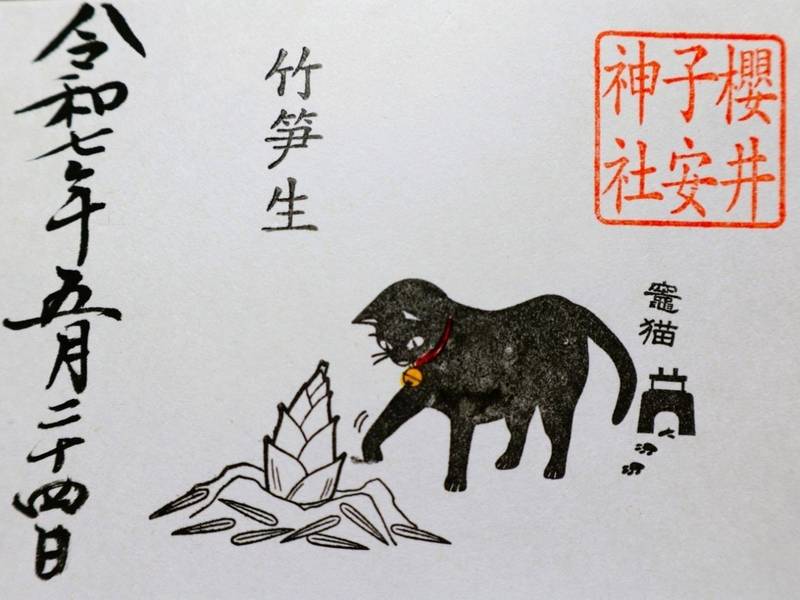 櫻井
子安
神社
竈猫
竹笋生
令和七年五月二十四日